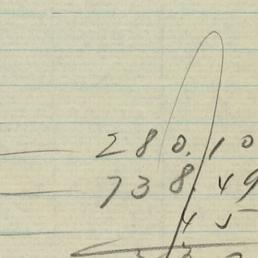 280.10
738.49
45